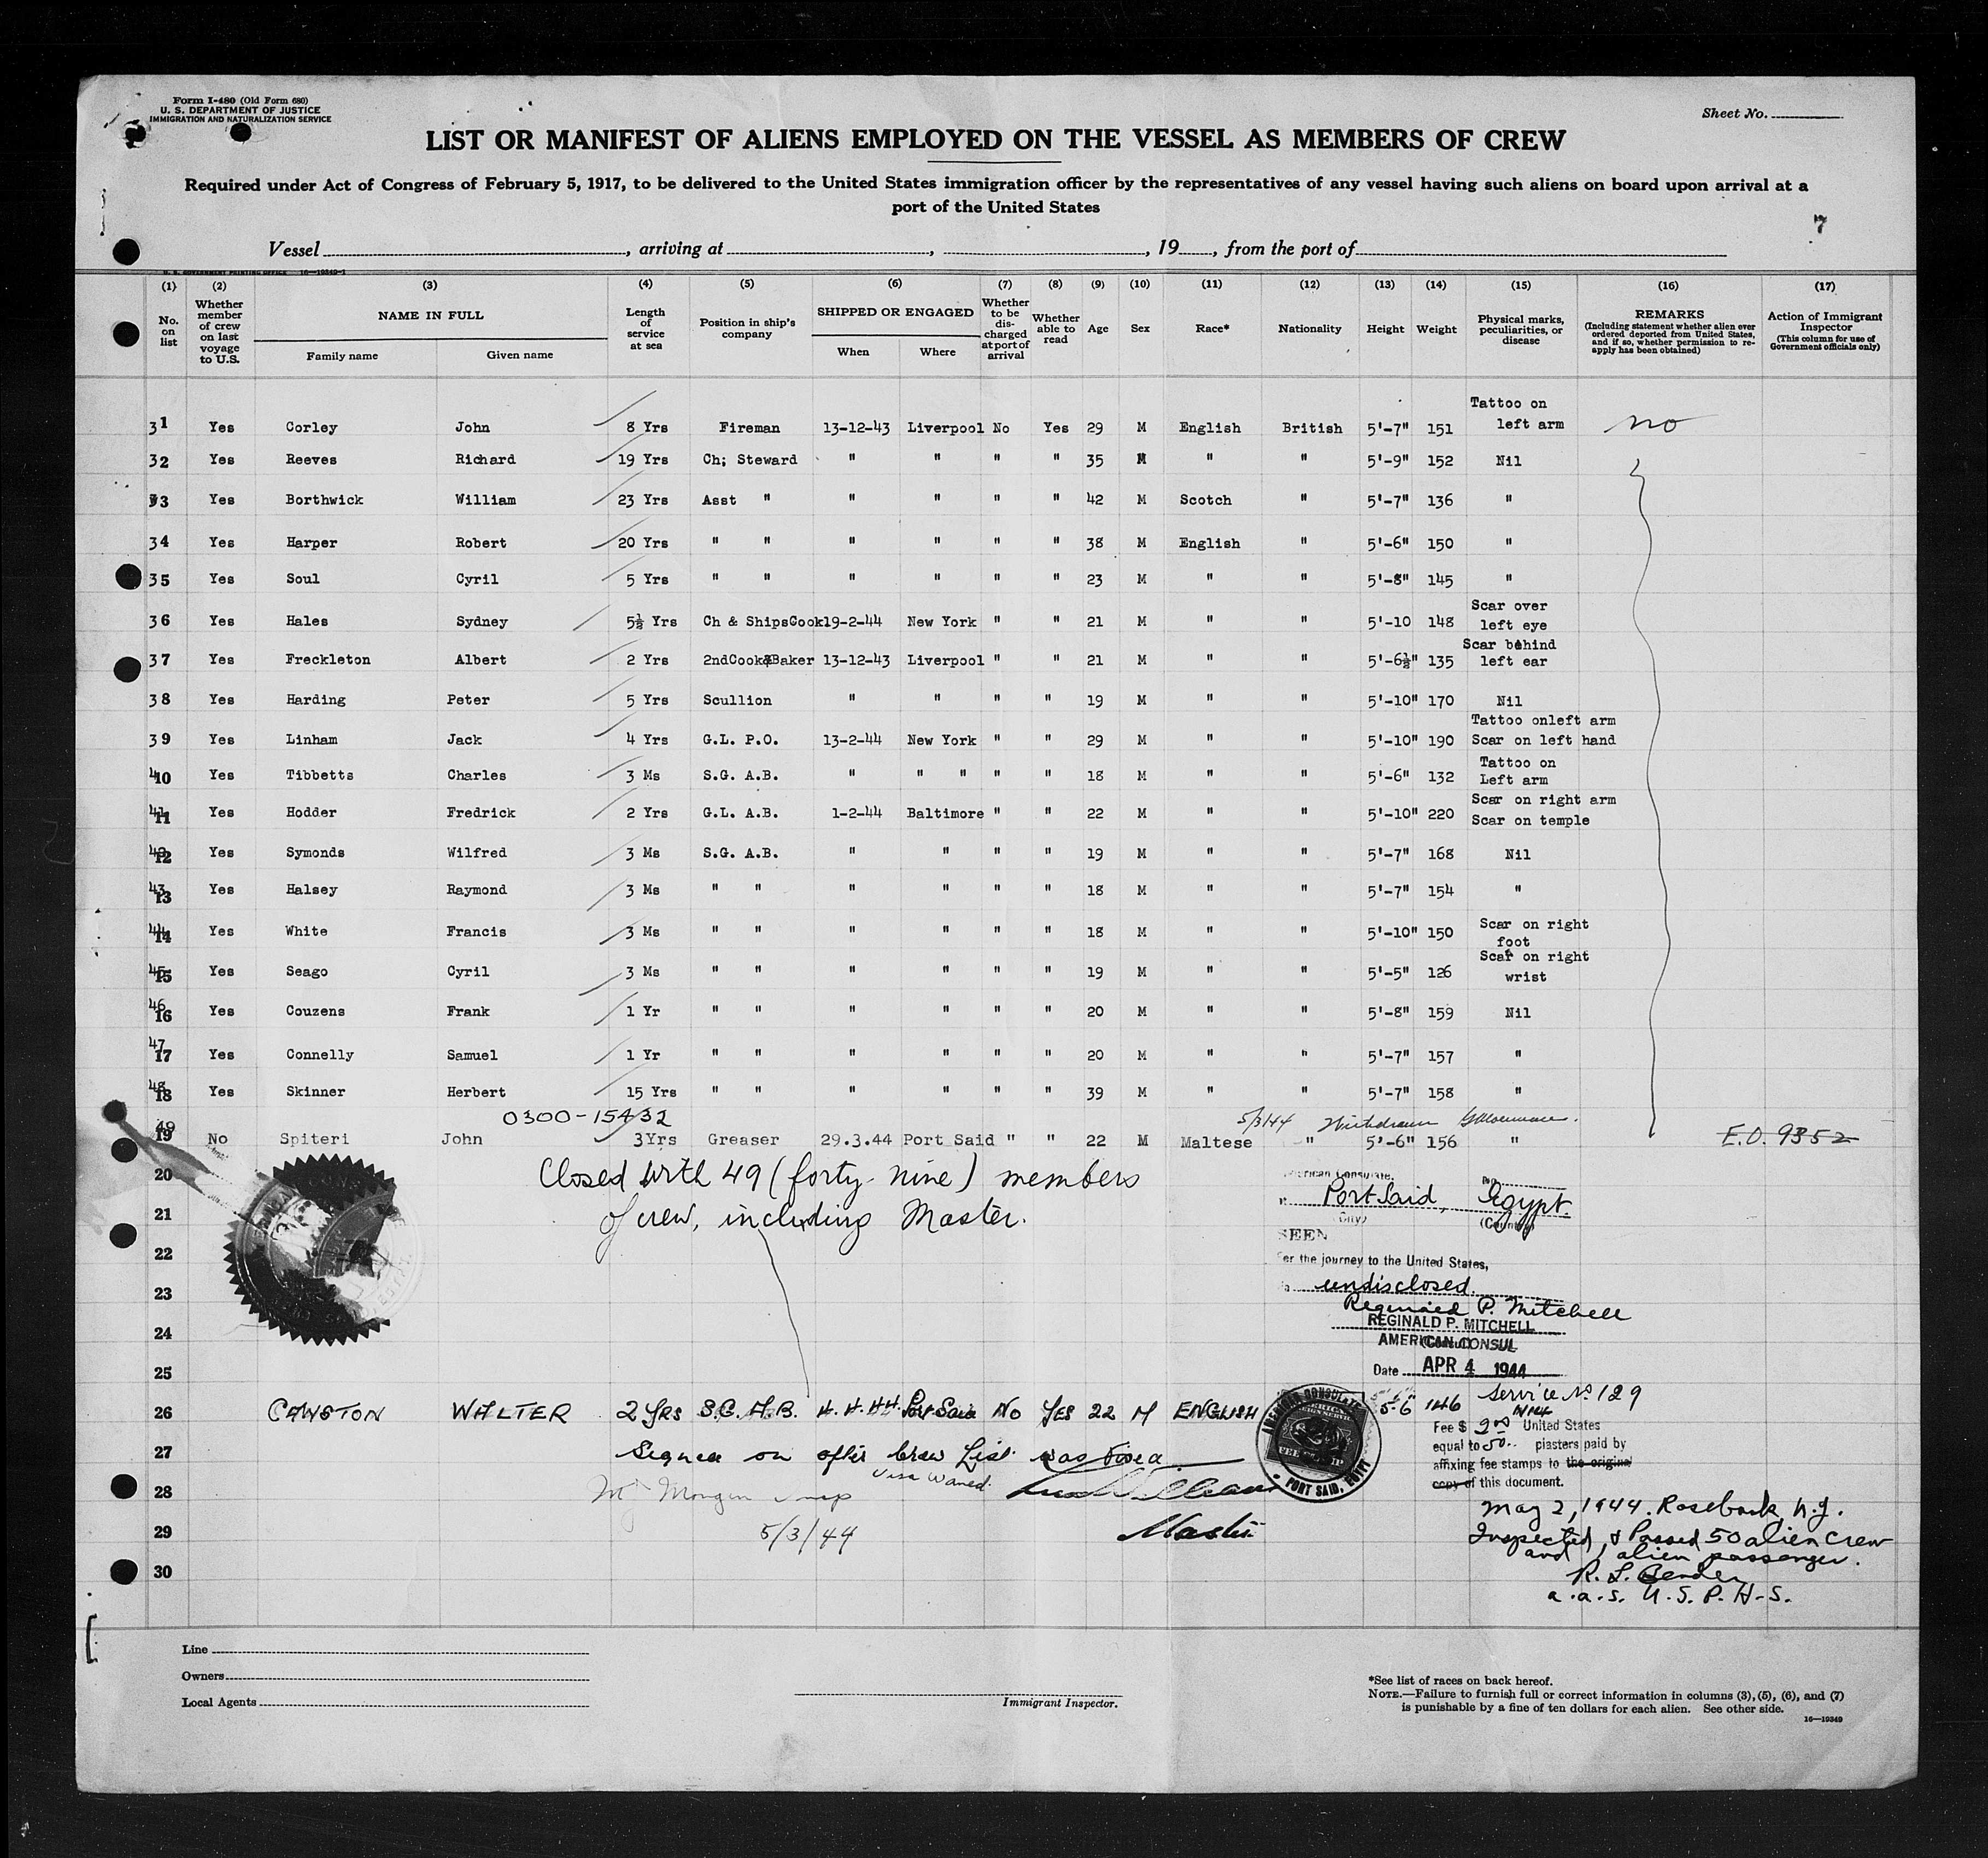 Form I-480 (Old Form 680)
U. S. DEPARTMENT OF JUSTICE
IMMIGRATION AND NATURALIZATION SERVICE
Sheet No.
LIST OR MANIFEST OF ALIENS EMPLOYED ON THE VESSEL AS MEMBERS OF CREW
Required under Act of Congress of February 5, 1917, to be delivered to the United States immigration officer by the representatives of any vessel having such aliens on board upon arrival at a
port of the United States
7
Vessel , arriving at , , 19 , from the port of
U. S. GOVERNMENT PRINTING OFFICE 16—19349-1
(1) (2) (3) (4) (5) (6) (7) (8) (9) (10) (11) (12) (13) (14) (15) (16) (17)
No. on list
Whether member of crew on last voyage to U.S.
NAME IN FULL
Family name Given name
Length of service at sea
Position in ship's company
SHIPPED OR ENGAGED
When Where
Whether to be discharged at port of arrival
Whether able to read
Age
Sex
Race*
Nationality
Height
Weight
Physical marks, peculiarities, or disease
REMARKS
(Including statement whether alien ever ordered deported from United States, and if so, whether permission to reapply has been obtained)
Action of Immigrant Inspector
(This column for use of Government officials only)
31 Yes Corley John 8 Yrs Fireman 13-12-43 Liverpool No Yes 29 M English British 5'-7" 151 Tattoo on left arm no
32 Yes Reeves Richard 19 Yrs Ch; Steward " " " " 35 M " " 5'-9" 152 Nil
33 Yes Borthwick William 23 Yrs Asst " " " " " 42 M Scotch " 5'-7" 136 "
34 Yes Harper Robert 20 Yrs " " " " " " 38 M English " 5'-6" 150 "
35 Yes Soul Cyril 5 Yrs " " " " " " 23 M " " 5'-8" 145 "
36 Yes Hales Sydney 5½ Yrs Ch & ShipsCook 19-2-44 New York " " 21 M " " 5'-10 148 Scar over left eye
37 Yes Freckleton Albert 2 Yrs 2ndCook&Baker 13-12-43 Liverpool " " 21 M " " 5'-6½" 135 Scar behind left ear
38 Yes Harding Peter 5 Yrs Scullion " " " " 19 M " " 5'-10" 170 Nil
39 Yes Linham Jack 4 Yrs G.L. P.O. 13-2-44 New York " " 29 M " " 5'-10" 190 Tattoo onleft arm Scar on left hand
40 Yes Tibbetts Charles 3 Ms S.G. A.B. " " " " " 18 M " " 5'-6" 132 Tattoo on Left arm
41 11 Yes Hodder Fredrick 2 Yrs G.L. A.B. 1-2-44 Baltimore " " 22 M " " 5'-10" 220 Scar on right arm Scar on temple
42 12 Yes Symonds Wilfred 3 Ms S.G. A.B. " " " " 19 M " " 5'-7" 168 Nil
43 13 Yes Halsey Raymond 3 Ms " " " " " " 18 M " " 5'-7" 154 "
44 14 Yes White Francis 3 Ms " " " " " " 18 M " " 5'-10" 150 Scar on right foot
45 15 Yes Seago Cyril 3 Ms " " " " " " 19 M " " 5'-5" 126 Scar on right wrist
46 16 Yes Couzens Frank 1 Yr " " " " " " 20 M " " 5'-8" 159 Nil
47 17 Yes Connelly Samuel 1 Yr " " " " " " 20 M " " 5'-7" 157 "
48 18 Yes Skinner Herbert 15 Yrs " " " " " " 39 M " " 5'-7" 158 "
0300-15432 5/3/44 Withdrawn
49 19 No Spiteri John 3Yrs Greaser 29.3.44 Port Said " " 22 M Maltese " 5'-6" 156 " E.O. 9352
20
Closed with 49 (forty-nine) members
21
of crew, including Master.
22
23
24
25
American Consulate,
Port Said, Egypt.
(City) (Country)
SEEN
For the journey to the United States,
undisclosed.
Reginald P. Mitchell
REGINALD P. MITCHELL
AMERICAN CONSUL
Date APR 4 1944
26 CAWSTON WALTER 2 YRS S.G. A.B. 4.4.44. Port Said NO YES 22 M ENGLISH 5'-6 146
Service No 129
27 Signed on after Crew List was Vised
Visa waived.
28
29 5/3/44 Master
30
AMERICAN CONSULATE
PORT SAID, EGYPT
Fee $ 2.00 United States
equal to 50 piasters paid by
affixing fee stamps to the original
copy of this document.
May 2, 1944. Rosebank, N.Y.
Inspected & Passed 50 alien crew
and 1 alien passenger.
R. L. Bender
a.a.s. U.S.P.H.S.
Line
Owners
Local Agents
Immigrant Inspector.
*See list of races on back hereof.
NOTE.—Failure to furnish full or correct information in columns (3), (5), (6), and (7)
is punishable by a fine of ten dollars for each alien. See other side.
16—19349